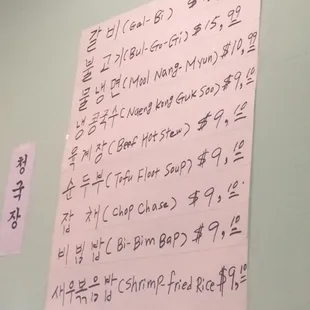 갈비(Gal-Bi) $
불고기(Bul-Go-Gi) $15,99
물냉면(Mool Nang-Myun) $10,99
냉콩국수(Naeng Kong Guk Soo) $9,10
육계장(Beef Hot Stew) $9,10
순두부(Tofu Floot Soup) $9,10
잡채(Chop Chase) $9,10
비빔밥(Bi-Bim Bap) $9,10
새우볶음밥(Shrimp-fried Rice $9,10
청국장